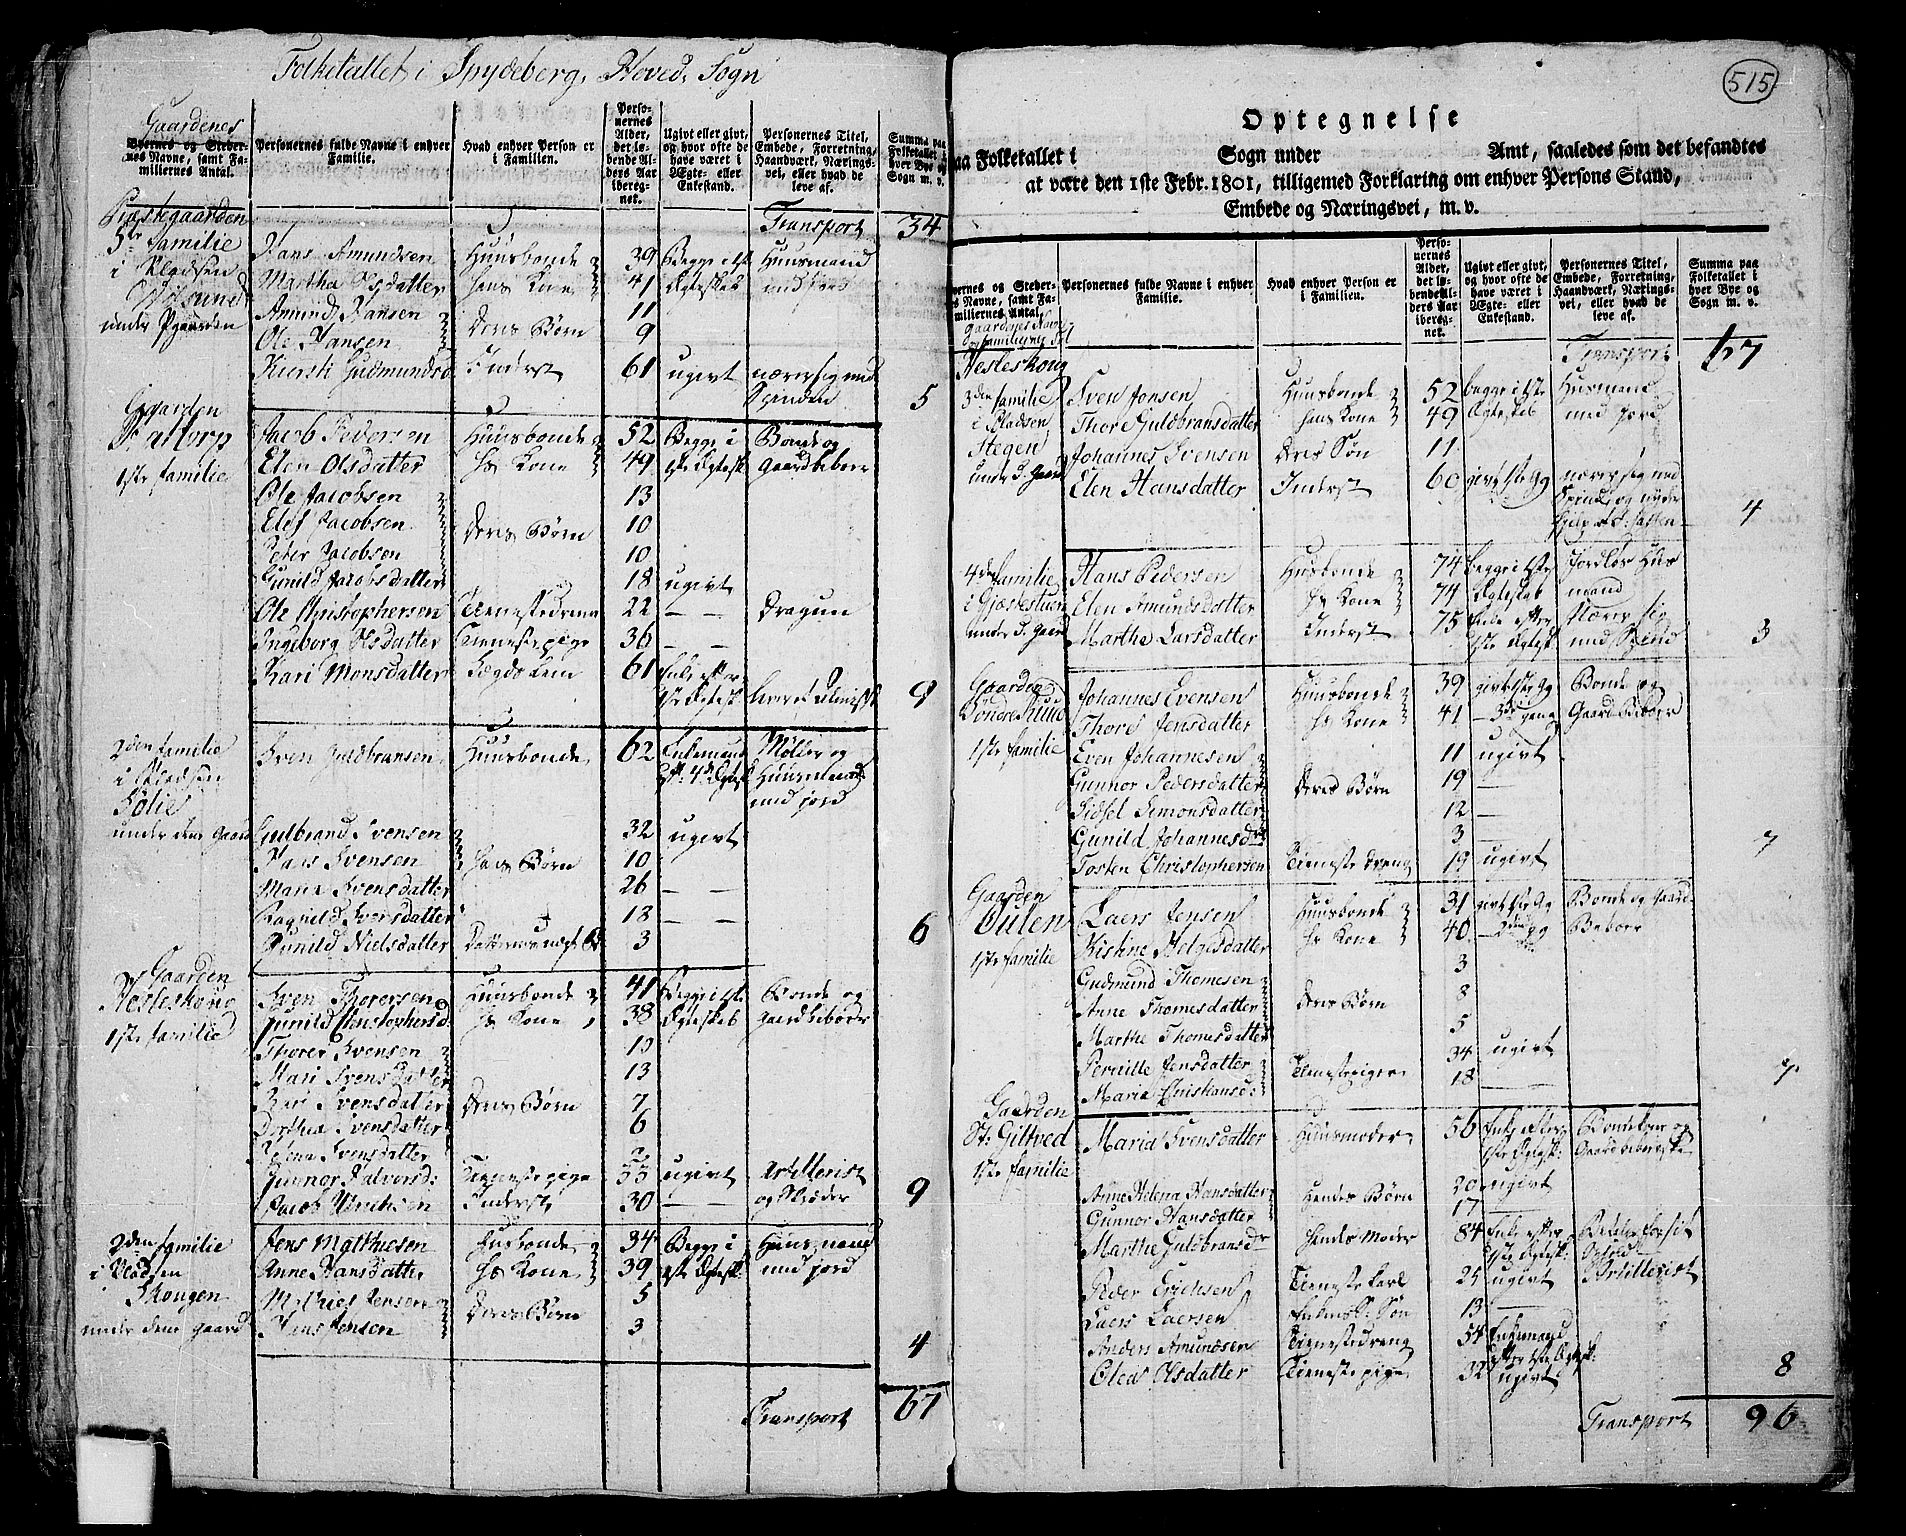 Folketallet i Spydeberg Hoved Sogn
Gaardenes
Byernes og Stedernes Navne, samt Familiernes Antal.
Personernes fulde Navne i enhver Familie.
Hvad enhver Person er i Familien.
Personernes Alder, det løbende Alders Aar iberegnet.
Ugivt eller givt, og hvor ofte de have været i Ægte- eller Enkestand.
Personernes Titel, Embede, Forretning, Haandværk, Næringsvei, eller hvad de leve af.
Summa paa Folketallet i hver Bye og Sogn m. v.
Præstegaarden Transport 34
5te familie Hans Amundsen Huusbonde 39 Begge i 1ste Huusmand
i Pladsen Martha Olsdatter hans Kone 41 Ægteskab med Jord
Amund Hansen 11
under Pgaarden Ole Hansen Deres Børn 9
Kiersti Gudmundsd Inderst 61 ugivt nærer sig med Spinden 5
Gaarden
Jacob Pedersen Huusbonde 52 Begge i Bonde og
1ste familie Elen Olsdatter hs Kone 49 1ste Ægtesk Gaardbeboer
Ole Jacobsen 13
Elef Jacobsen Deres Børn 10
Peter Jacobsen 10
Gunild Jacobsdatter 18 ugivt
Ole Christophersen Tienestedreng 22 — — Dragun
Ingeborg Olsdatter Tienestepige 36 — —
Kari Monsdatter Lægdslem 61 Enke efter 1ste Ægtesk lever af Almisse 9
2den familie Sven Guldbransen Huusbonde 62 Enkemand Møller og
i Pladsen eft: 4de Ægtesk Huusmand
Solie med jord
under dene Gaard Gulbrand Svensen 32 ugivt
Hans Svensen hans Børn 10
Maria Svensdatter 26 — —
Ragnild Svensdatter 18 — —
Gunild Nielsdatter 3 6
Gaarden
Hesleskoug Sven Thorersen Huusbonde 41 Begge i 1ste Bonde og
Gunild Christophersd: hs Kone 38 Ægteskab Gaardbeboer
1ste familie Thorer Svensen 10
Mari Svensdatter 13
Kari Svensdatter Deres Børn 7
Dorthea Svensdatter 6
Helena Svensdatter
Gunnor Halvorsd: Tienestepige 55 ugivt Artillerist
Jacob Henrihsen Inderst 30 — — og Skræder 9
2den familie Jens Mathiesen Husbonde 34 Begge i Huusmand
i Pladsen Anne Hansdatter hs Kone 39 1ste Ægtesk med jord
Skougen Mathies Jensen Deres Børn 5
under dene gaard Hans Jensen 3 4
Transport 67
515
Optegnelse
paa Folketallet i Sogn under Amt, saaledes som det befandtes
at være den 1ste Febr. 1801, tilligemed Forklaring om enhver Persons Stand,
Embede og Næringsvei, m. v.
Byernes og Stedernes Navne, samt Familiernes Antal.
Personernes fulde Navne i enhver Familie.
Hvad enhver Person er i Familien.
Personernes Alder, det løbende Alders Aar iberegnet.
Ugivt eller givt, og hvor ofte de have været i Ægte- eller Enkestand.
Personernes Titel, Embede, Forretning, Haandværk, Næringsvei, eller hvad de leve af.
Summa paa Folketallet i hver Bye og Sogn m. v.
Gaardenes Navne
Hesleskoug Transport 67
3die familie Sven Jonsen Huusbonde 52 begge i 1ste Husmand
i Pladsen Thore Guldbransdatter hans Kone 49 Ægteskab med jord
Stegen Johannes Svensen Deres Søn 11
under d. Gaard Elen Hansdatter Inderst 60 givt 1ste Gg nærer sig med Spind, og nyder hjelp af F: Kassen 4
4de familie Hans Pedersen Husbonde 74 begge i 1ste Jordløs Hus
i Gjæstestuen Elen Amundsdatter hs Kone 74 Ægteskab mand
under d. Gaard Martha Larsdatter Inderst 75 Enke efter 1ste Ægtesk Nærer sig med Spind 3
Gaarden Johannes Evensen Huusbonde 39 givt 1ste Gg Bonde og
Thore Jensdatter hs Kone 41 — 3de gang Gaard Beboer
1ste familie Even Johannesen 11 ugivt
Gunnor Pedersdatter Deres Børn 19 —
Sidsel Simonsdatter 12 —
Gunild Johannesdr 3 — 7
Tosten Christophersen Tieneste dreng 19 ugivt
Gaarden Laers Jensen Huusbonde 31 givt 1ste Gg Bonde og Gaard-
Oulen Kistine Helgesdatter hs Kone 40 — 2den Gg Beboer
1ste familie Gudmund Thomesen 3
Anne Thomesdatter Deres Børn 8
Marthe Thomesdatter 5
Pernille Jensdatter Tienestepiger 34 ugivt
Maria Christiansd: 18 — 7
Gaarden
St: Gittved Maria Svensdatter Huusmoder 56 Enke efter Bondekone og
1ste familie 1ste Ægtesk: Gaardbeboerske
Anne Helena Hansdatter Hendes Børn 20 ugivt
Gunnor Hansdatter 17 —
Marthe Guldbransdr hendes Moder 84 Enke efter 1ste Ægtesk:
Peder Erichsen Tieneste karl 25 ugivt Artillerist
Laers Laersen Søn 13 —
Anders Amundsen Tienestedreng 54 Enkemand efter 1ste Ægtesk:
Olea Olsdatter Tieneste pige 32 ugivt 8
Transport 96